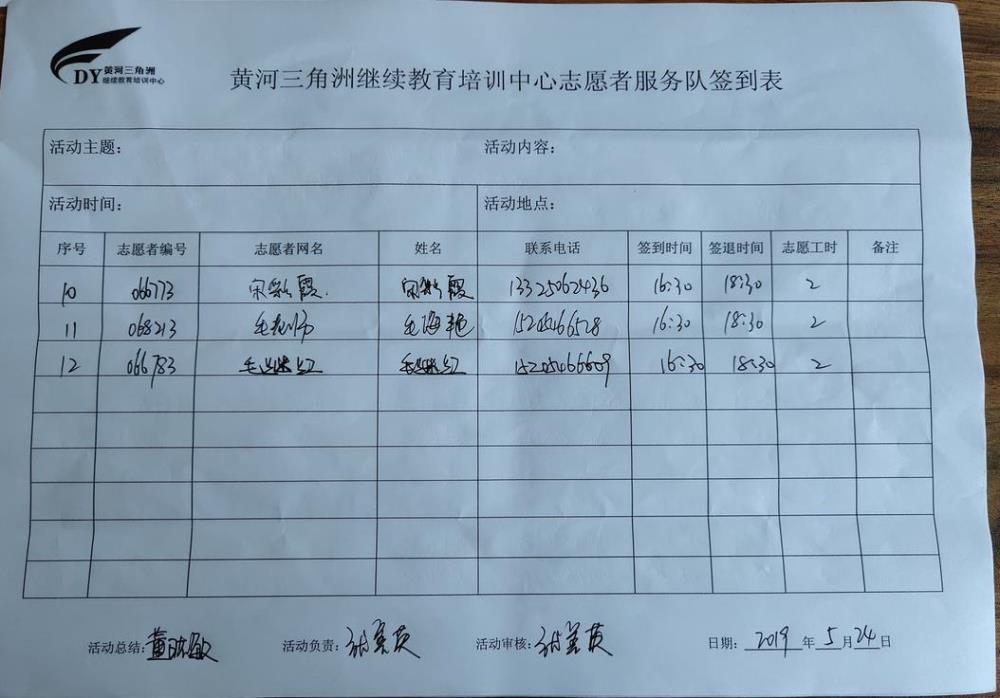 DY 黄河三角洲
继续教育培训中心
黄河三角洲继续教育培训中心志愿者服务队签到表
活动主题: 活动内容:
活动时间: 活动地点:
序号 志愿者编号 志愿者网名 姓名 联系电话 签到时间 签退时间 志愿工时 备注
10 066773 宋彩霞. 宋彩霞 13325062436 16:30 18:30 2
11 068213 毛 毛海艳 15205466528 16:30 18:30 2
12 066783 毛 红 毛 红 15205466609 16:30 18:30 2
活动总结: 董 敏 活动负责: 美英 活动审核: 美英 日期: 2019 年 5 月 24 日